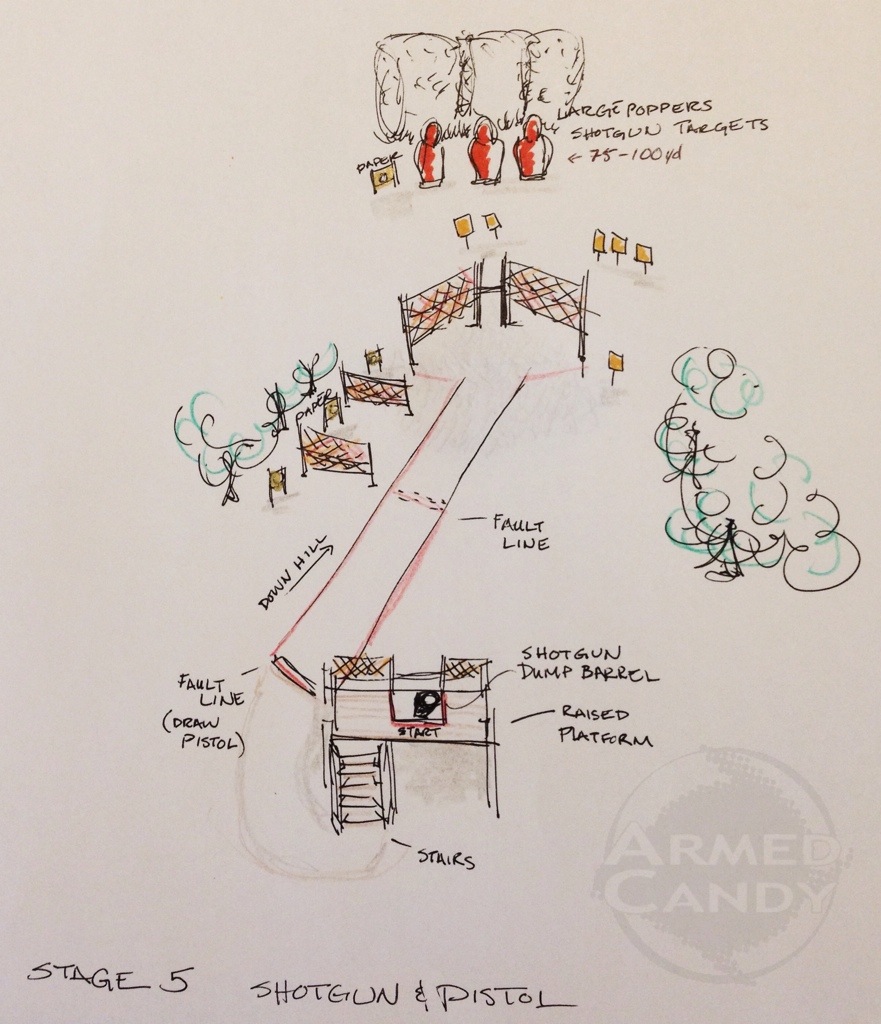 LARGE POPPERS
SHOTGUN TARGETS
← 75-100yd
PAPER
PAPER
FAULT
LINE
DOWN HILL
SHOTGUN
DUMP BARREL
FAULT
LINE
(DRAW
PISTOL)
START
RAISED
PLATFORM
STAIRS
ARMED
CANDY
STAGE 5
SHOTGUN & PISTOL